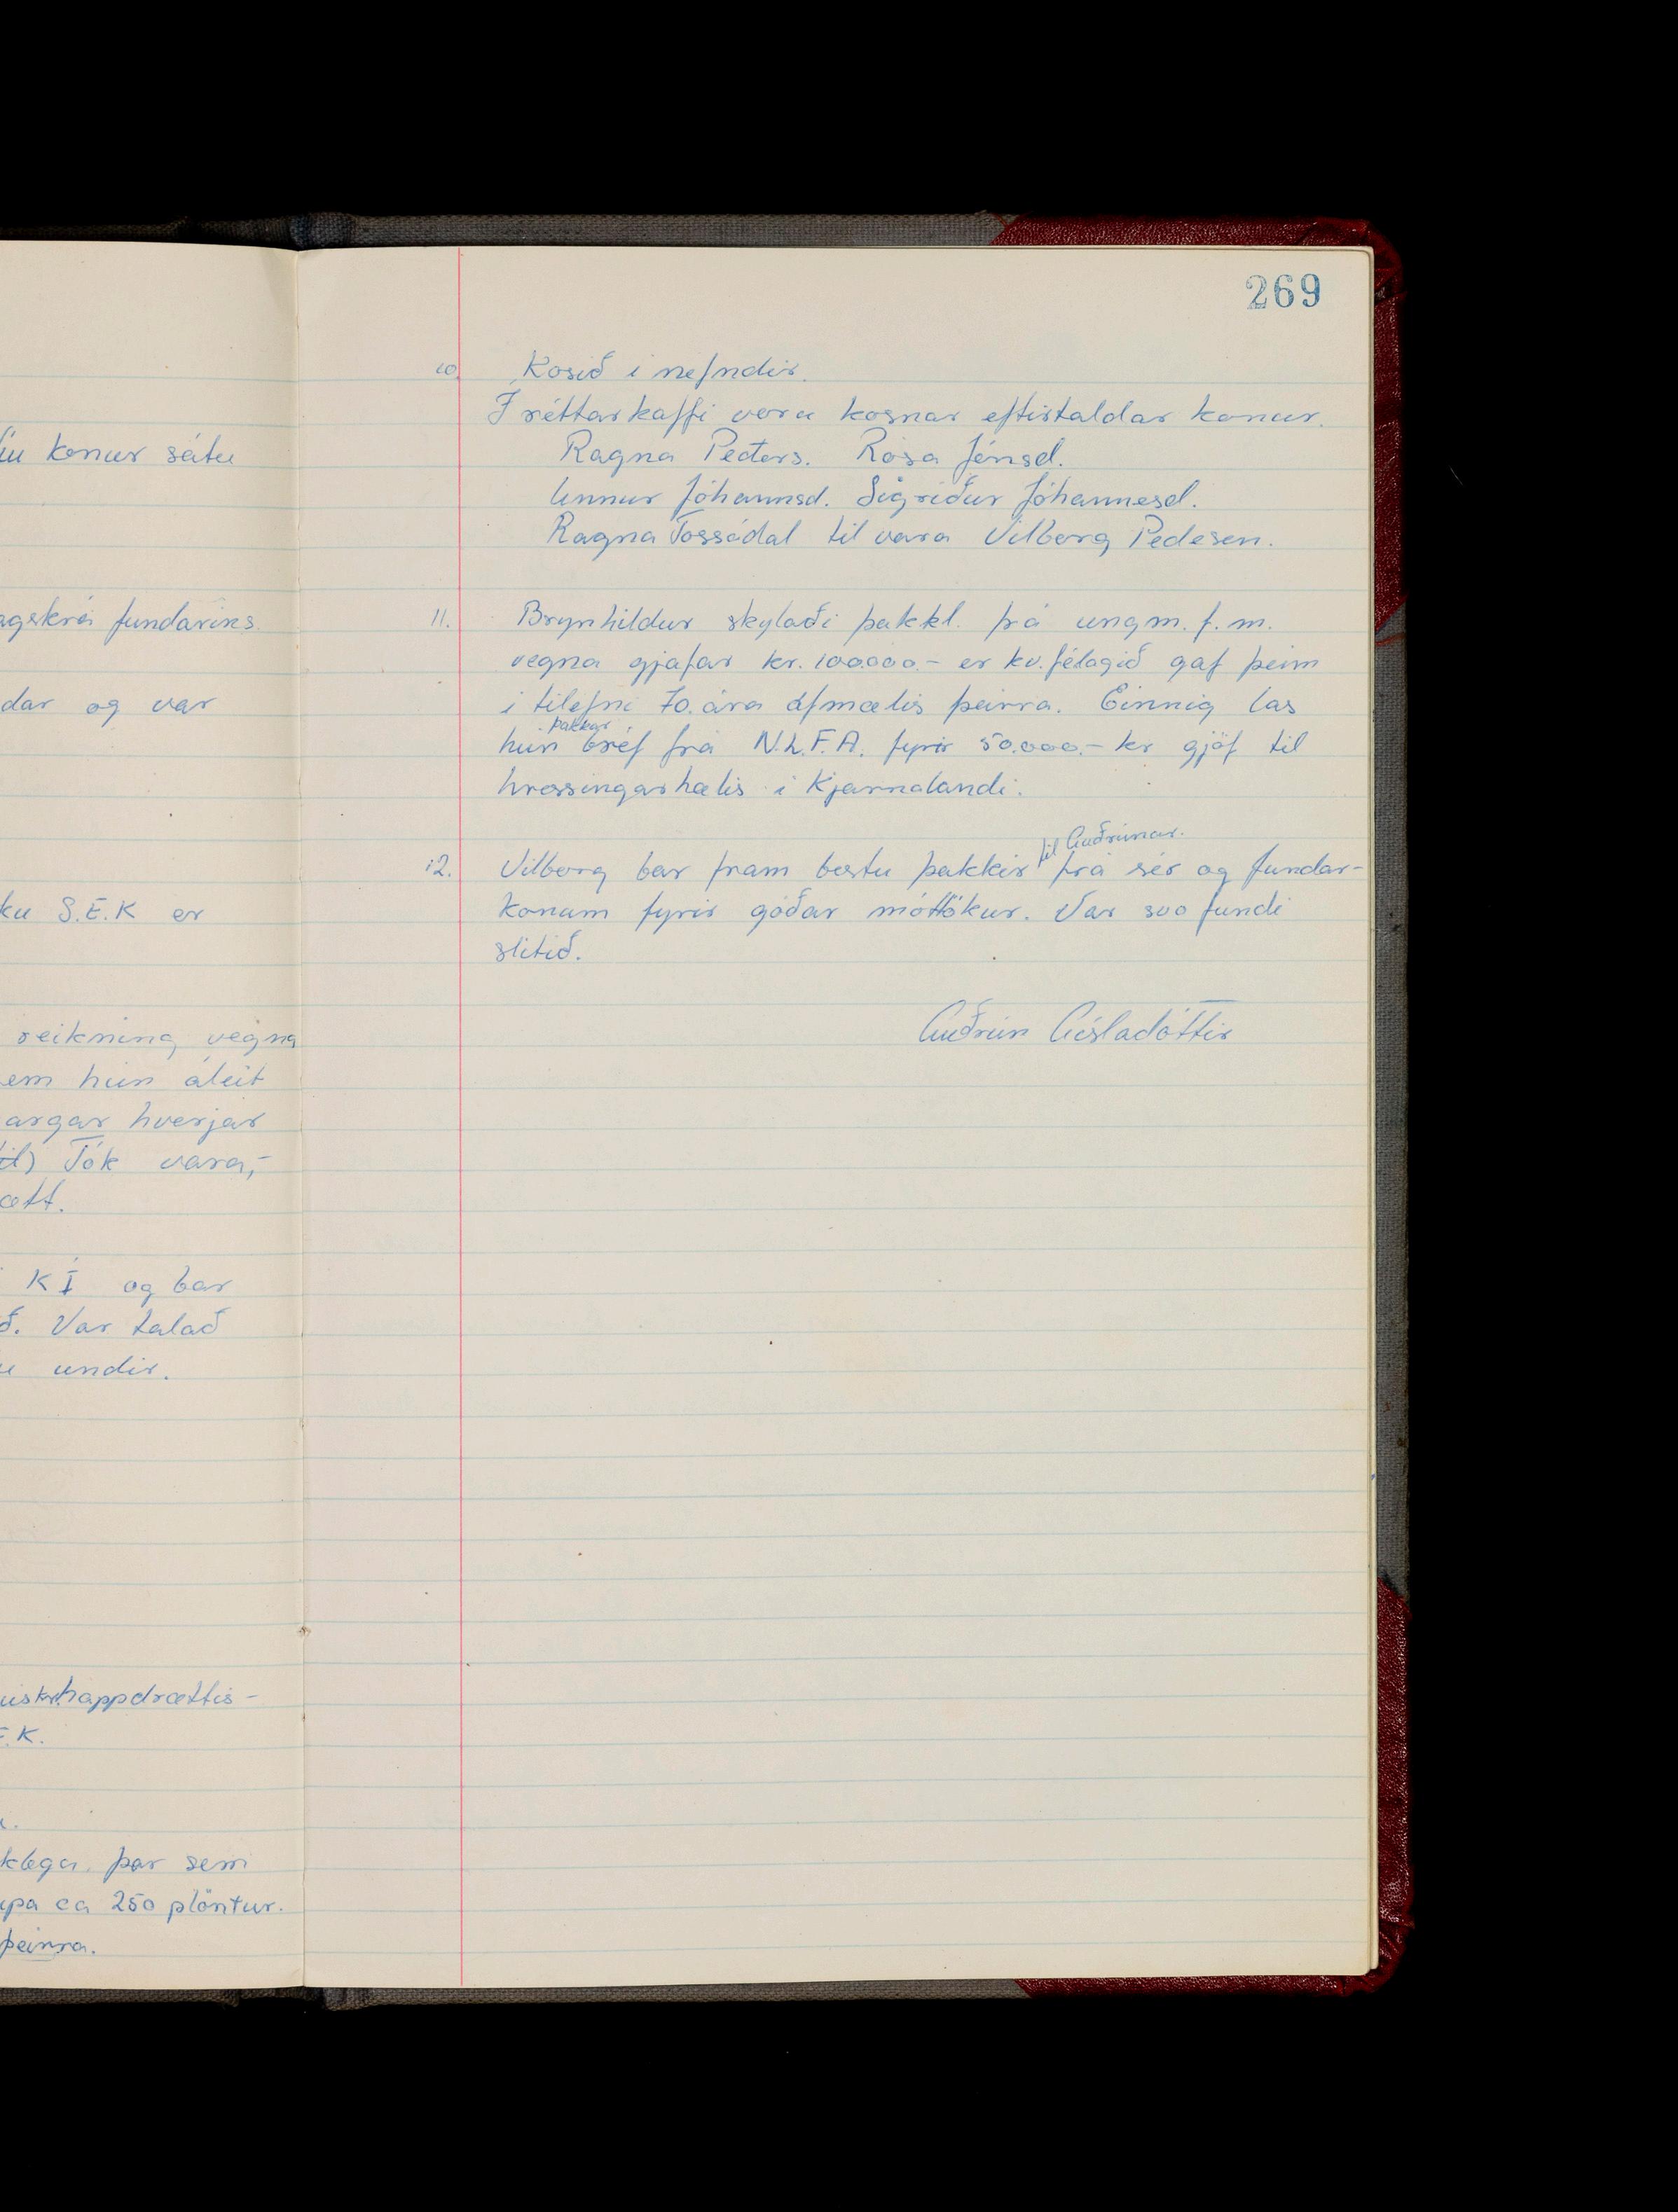 konur sátu
agskrá fundarins.
dar og var
ku S.E.K er
reikning vegna
em hún áleit
argar hverjar
til) Tók vara,-
ætt.
KÍ og bar
ð. Var talað
undir.
happdrættis-
E.K.
klega. þar sem
upa ca 250 plöntur.
þeirra.
269
10. Kosið i nefndir.
Í réttarkaffi voru kosnar eftirtaldar konur.
Ragna Peders. Rósa Jónsd.
Unnur Jóhannsd. Sigríður Jóhannesd.
Ragna Fossádal til vara Vilborg Pedesen.
11. Brynhildur skylaði þakkl. frá ungm. f. m.
vegna gjafar kr. 100.000.- er kv.félagið gaf þeim
í tilefni 70. ára afmælis þeirra. Einnig las
þakkar
hún bréf frá N.L.F.A. fyrir 50.000.- kr gjöf til
hressingarhælis í Kjarnalandi.
til Guðrúnar.
12. Vilborg bar fram bestu þakkir frá sér og fundar-
konum fyrir góðar móttökur. Var svo fundi
slitið.
Guðrún Gísladóttir